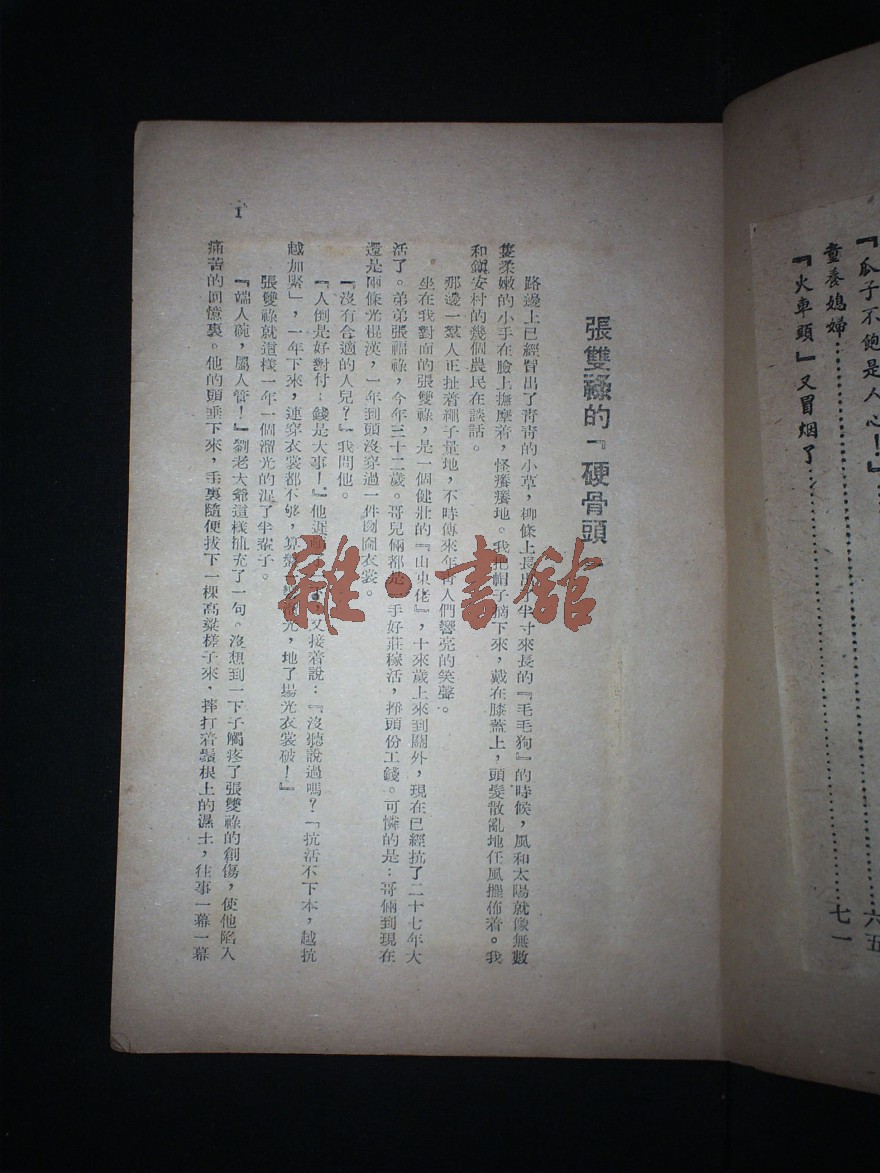 『瓜子不飽是人心！』
六五
童養媳婦
『火車頭』又冒烟了
七一
張雙祿的『硬骨頭
路邊上已經冒出了靑靑的小草，柳條上長出 半寸來長的『毛毛狗』的時候，風和太陽就像無數
隻柔嫩的小手在臉上撫摩着，怪癢癢地。我把帽子摘下來，戴在膝蓋上，頭髮散亂地任風擺佈着。我
和鎭安村的幾個農民在談話。
那邊一羣人正扯着繩子量地，不時傳來年靑人們響亮的笑聲。
坐在我對面的張雙祿，是一個健壯的『山東佬』，十來歲上來到關外，現在已經抗了二十七年大
活了。弟弟張福祿，今年三十二歲。哥兒倆都是一手好莊稼活，拚頭份工錢。可憐的是：哥倆到現在
還是兩條光棍漢，一年到頭沒穿過一件囫圇衣裳。
『沒有合適的人兒？』我問他。
『人倒是好對付；錢是大事！』他 又接着說：『沒聽說過嗎？「抗活不下本，越抗
越加緊」，一年下來，連穿衣裳都不够，算 光，地了場光衣裳破！』
張雙祿就這樣一年一個溜光的混了半輩子。
『端人碗，屬人管！』劉老大爺這樣補充了一句。沒想到一下子觸疼了張雙祿的創傷，使他陷入
痛苦的回憶裏。他的頭垂下來，手裏隨便拔下一棵高粱楂子來，摔打着鬚根上的濕土，往事一幕一幕
1
雜·書館